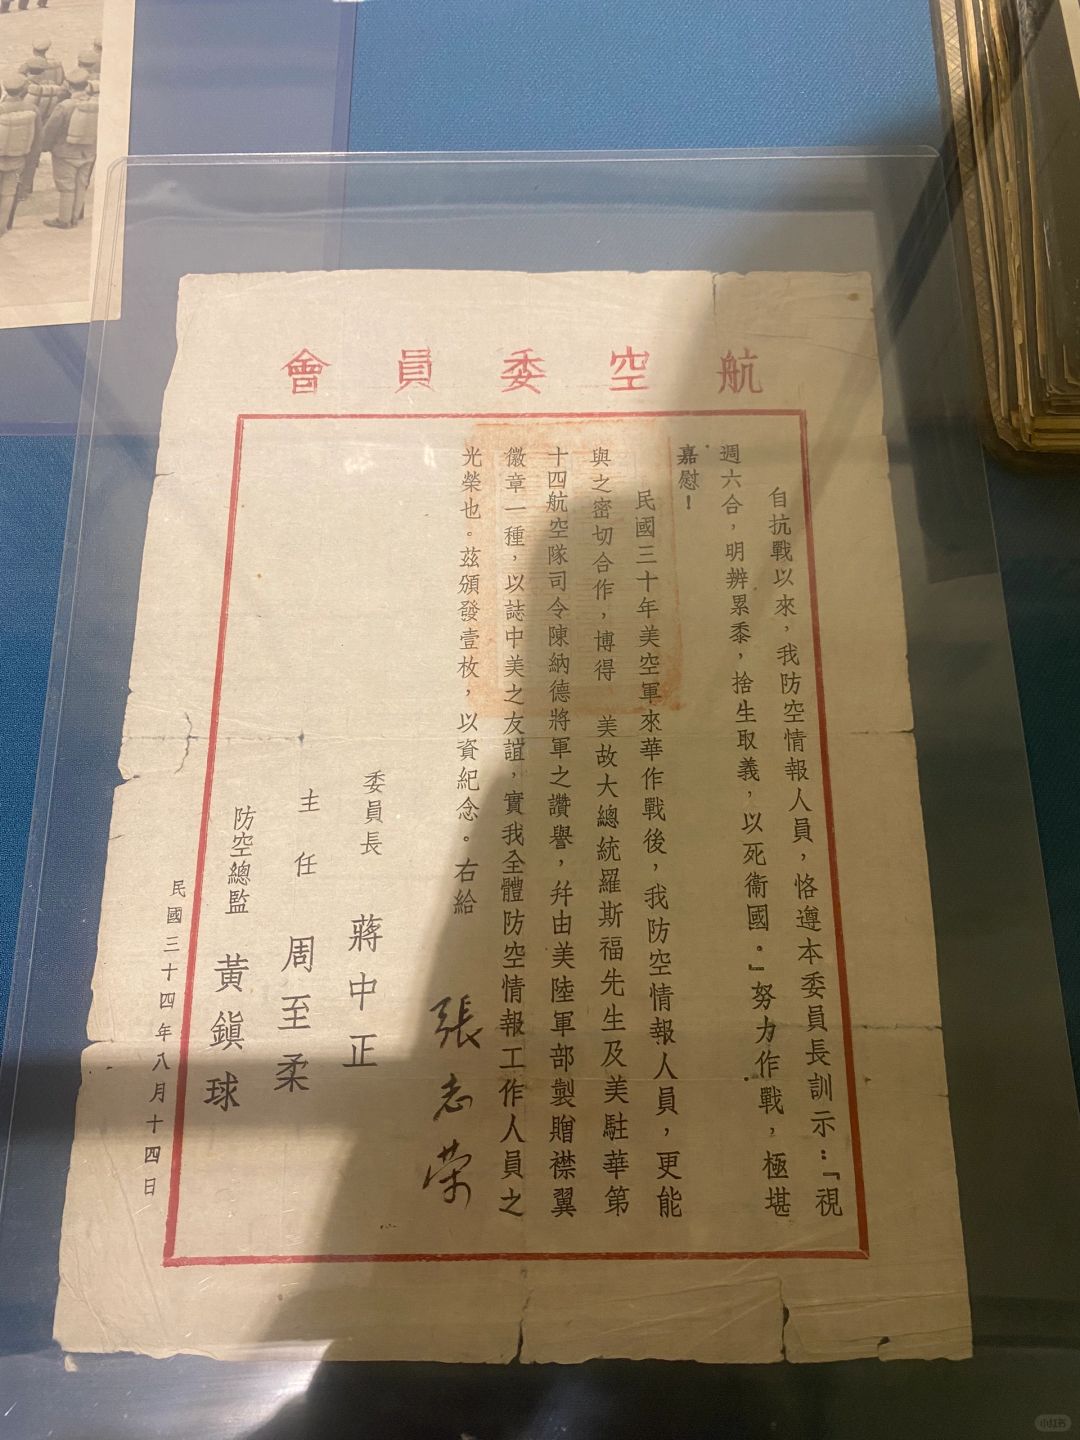 航空委員會
自抗戰以來，我防空情報人員，恪遵本委員長訓示：『視
週六合，明辨累黍，捨生取義，以死衞國。』努力作戰，極堪
嘉慰！
民國三十年美空軍來華作戰後，我防空情報人員，更能
與之密切合作，博得　美故大總統羅斯福先生及美駐華第
十四航空隊司令陳納德將軍之讚譽，幷由美陸軍部製贈襟翼
徽章一種，以誌中美之友誼，實我全體防空情報工作人員之
光榮也。茲頒發壹枚，以資紀念。右給　張志荣
委員長　蔣中正
主任　周至柔
防空總監　黃鎭球
民國三十四年八月十四日
小红书